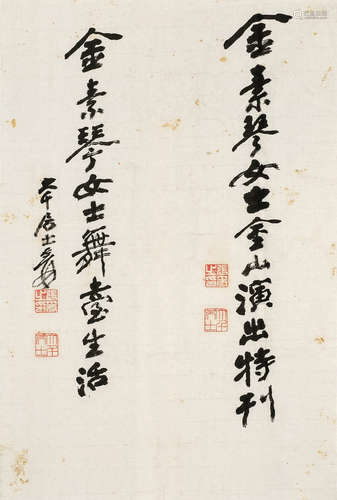 金素琴女士金山演出特刊
金素琴女士舞臺生活
大千居士爰